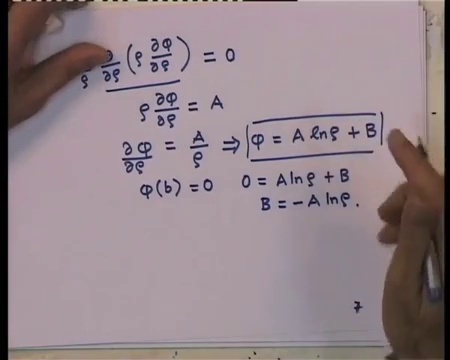 ρ ∂/∂ρ (ρ ∂φ/∂ρ) = 0
ρ ∂φ/∂ρ = A
∂φ/∂ρ = A/ρ ⇒ φ = A lnρ + B
φ(b) = 0 0 = A lnρ + B
B = -A lnρ.
7